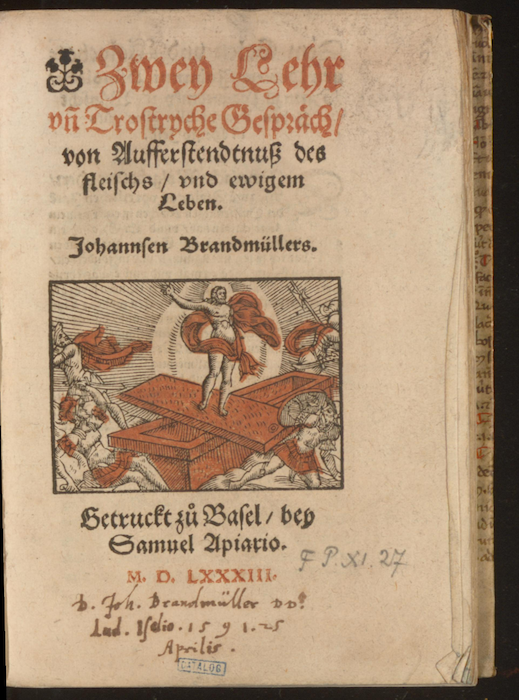 Zwey Lehr
vñ Trostryche Gespräch/
von Aufferstendtnuß des
fleischs / vnd ewigem
Leben.
Johannsen Brandmüllers.
Getruckt zů Basel / bey
Samuel Apiario.
F P. XI. 27
M. D. LXXXIII.
D. Joh. Brandmüller DD.
Lud. Iselio. 1591. 25
Aprilis.
CATALOG